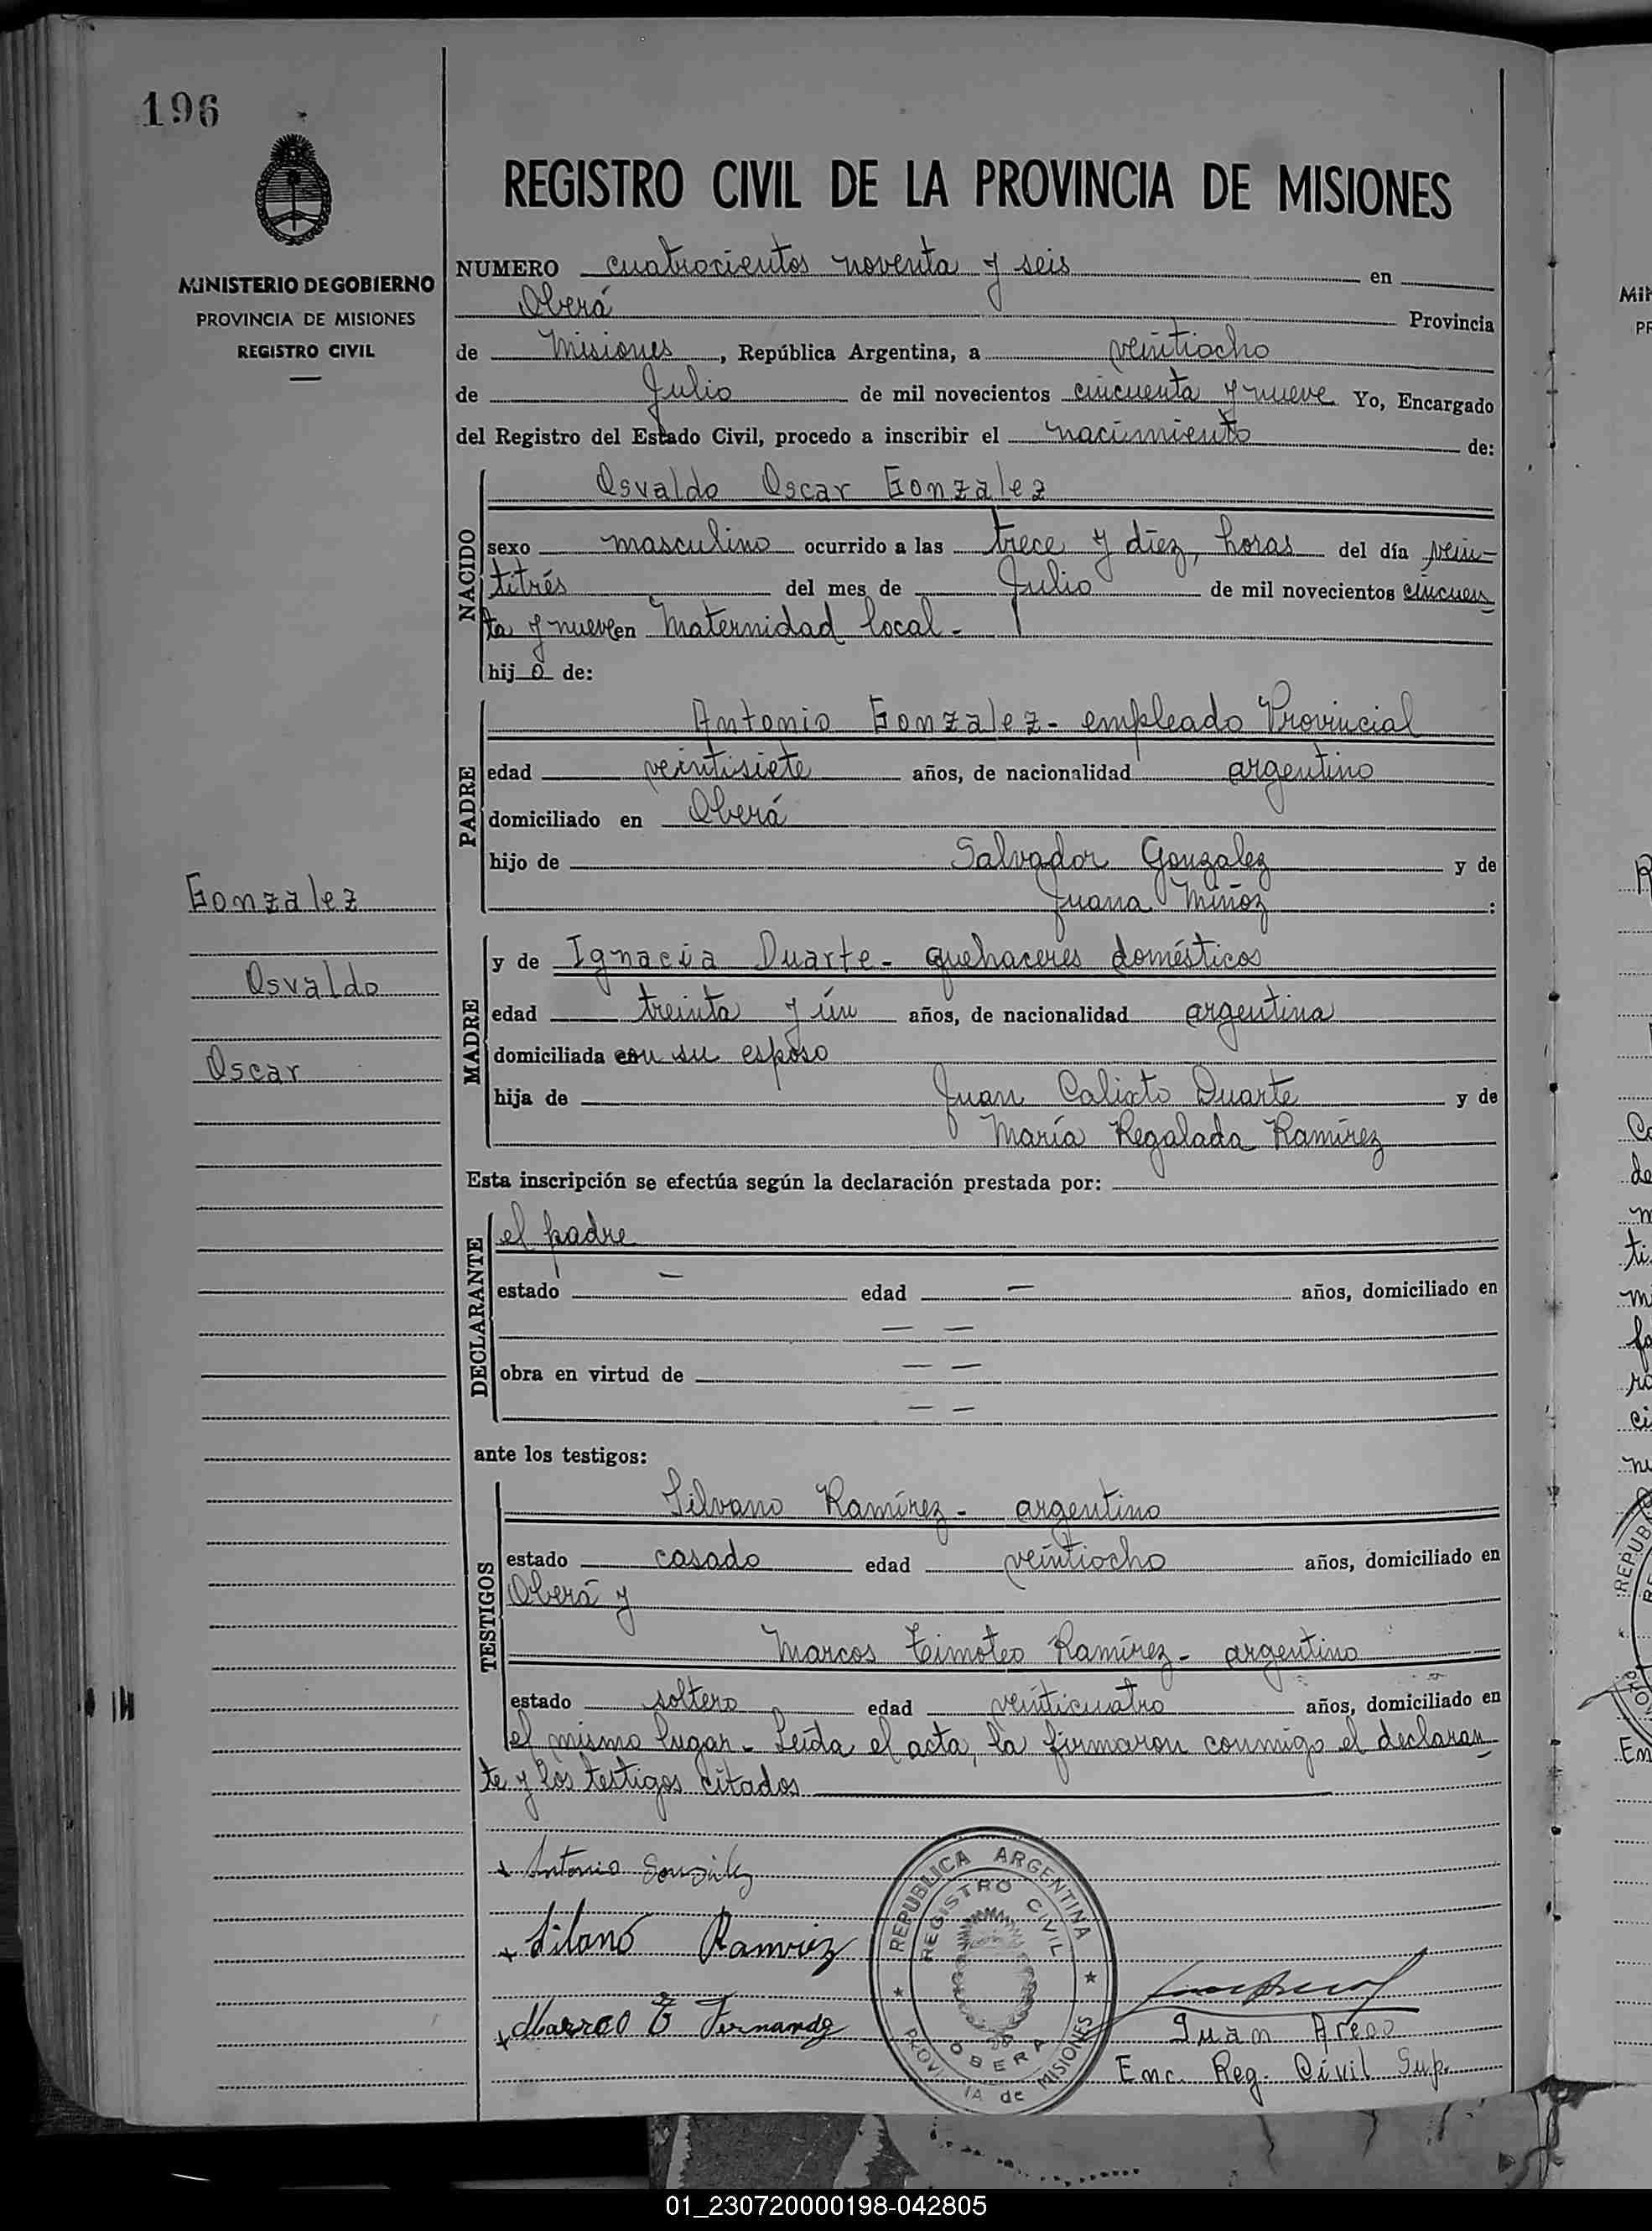 196
MINISTERIO DE GOBIERNO
PROVINCIA DE MISIONES
REGISTRO CIVIL
REGISTRO CIVIL DE LA PROVINCIA DE MISIONES
NUMERO cuatrocientos noventa y seis en
Oberá Provincia
de Misiones, República Argentina, a veintiocho
de Julio de mil novecientos cincuenta y nueve Yo, Encargado
del Registro del Estado Civil, procedo a inscribir el nacimiento de:
NACIDO
Osvaldo Oscar Gonzalez
sexo masculino ocurrido a las trece y diez, horas del día vein-
titrés del mes de Julio de mil novecientos cincuen
ta y nueve en Maternidad local.-
hijo de:
PADRE
Antonio Gonzalez - empleado Provincial
edad veintisiete años, de nacionalidad argentino
domiciliado en Oberá
hijo de Salvador Gonzalez y de
Juana Miñoz :
Gonzalez
Osvaldo
Oscar
MADRE
y de Ignacia Duarte - quehaceres domésticos
edad treinta y ún años, de nacionalidad argentina
domiciliada con su esposo
hija de Juan Calixto Duarte y de
María Regalada Ramírez
Esta inscripción se efectúa según la declaración prestada por:
DECLARANTE
el padre
estado — edad — años, domiciliado en
— —
obra en virtud de — —
— —
ante los testigos:
TESTIGOS
Silvano Ramírez - argentino
estado casado edad veintiocho años, domiciliado en
Oberá y
Marcos Timoteo Ramírez - argentino
estado soltero edad veinticuatro años, domiciliado en
el mismo lugar - Leída el acta, la firmaron conmigo el declaran
te y los testigos citados
Antonio González
Silano Ramirez
Marco T Fernandz
REPUBLICA ARGENTINA
REGISTRO CIVIL
OBERA
PROVI IA de MISIONES
Juan Areco
Enc. Reg. Civil Sup.
01_230720000198-042805